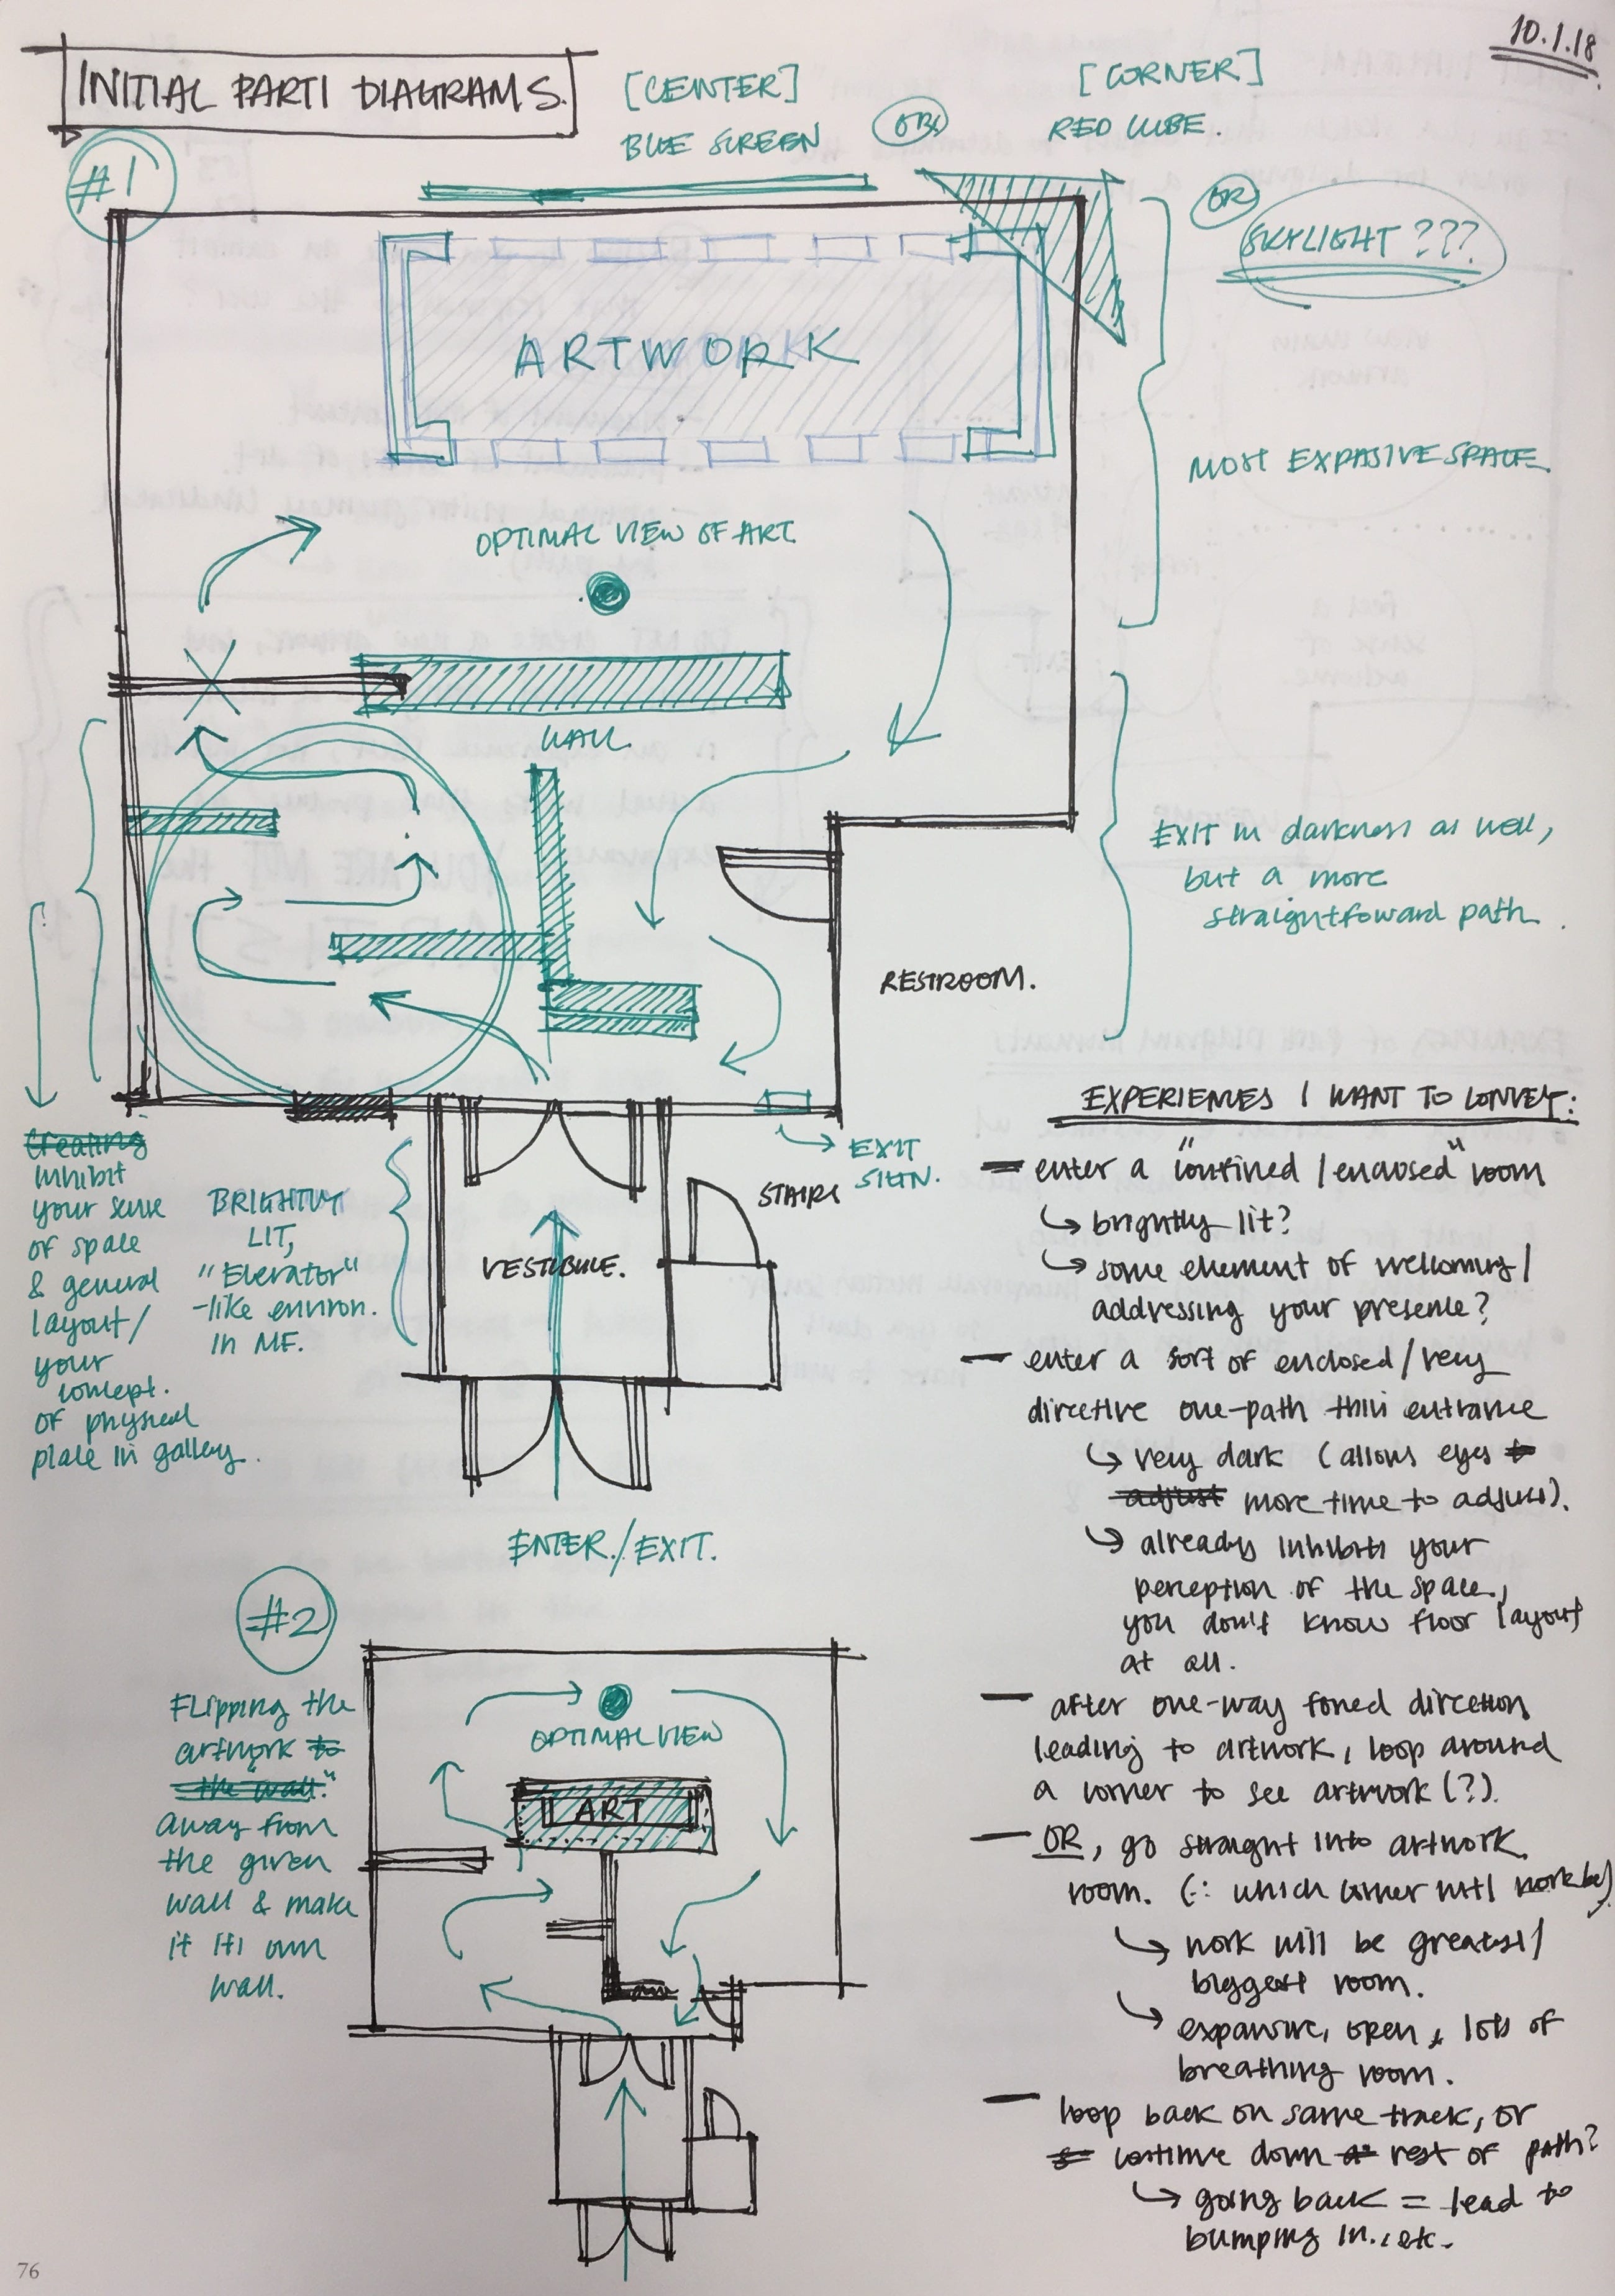 10.1.18
INITIAL PARTI DIAGRAMS.
[CENTER]
BLUE SCREEN
OR
[CORNER]
RED CUBE.
#1
OR
SKYLIGHT ???
ARTWORK
MOST EXPASIVE SPACE.
OPTIMAL VIEW OF ART.
WALL.
EXIT in darkness as well,
but a more
straightfoward path.
RESTROOM.
EXIT
SIGN.
STAIRS
VESTIBULE.
BRIGHTLY
LIT,
"Elevator"
-like environ.
in MF.
Creating
Inhibit
your sense
of space
& general
layout/
your
concept.
of physical
place in gallery.
ENTER./EXIT.
EXPERIENCES I WANT TO CONVEY:
— enter a "confined / enclosed" room
↳ brightly lit?
↳ some element of welcoming /
addressing your presence?
— enter a sort of enclosed/very
directive one-path thin entrance
↳ very dark (allows eyes to
adjust more time to adjust).
↳ already inhibits your
perception of the space.,
you don't know floor layout
at all.
— after one-way forced direction
leading to artwork, loop around
a corner to see artwork (?).
— OR, go straight into artwork
room. (: which corner will work be)
↳ work will be greatest/
biggest room.
↳ expansive, open, lots of
breathing room.
— loop back on same track, or
continue down rest of path?
↳ going back = lead to
bumping in., etc.
#2
Flipping the
artwork to
"the wall."
away from
the given
wall & make
it its own
wall.
OPTIMAL VIEW
ART
76